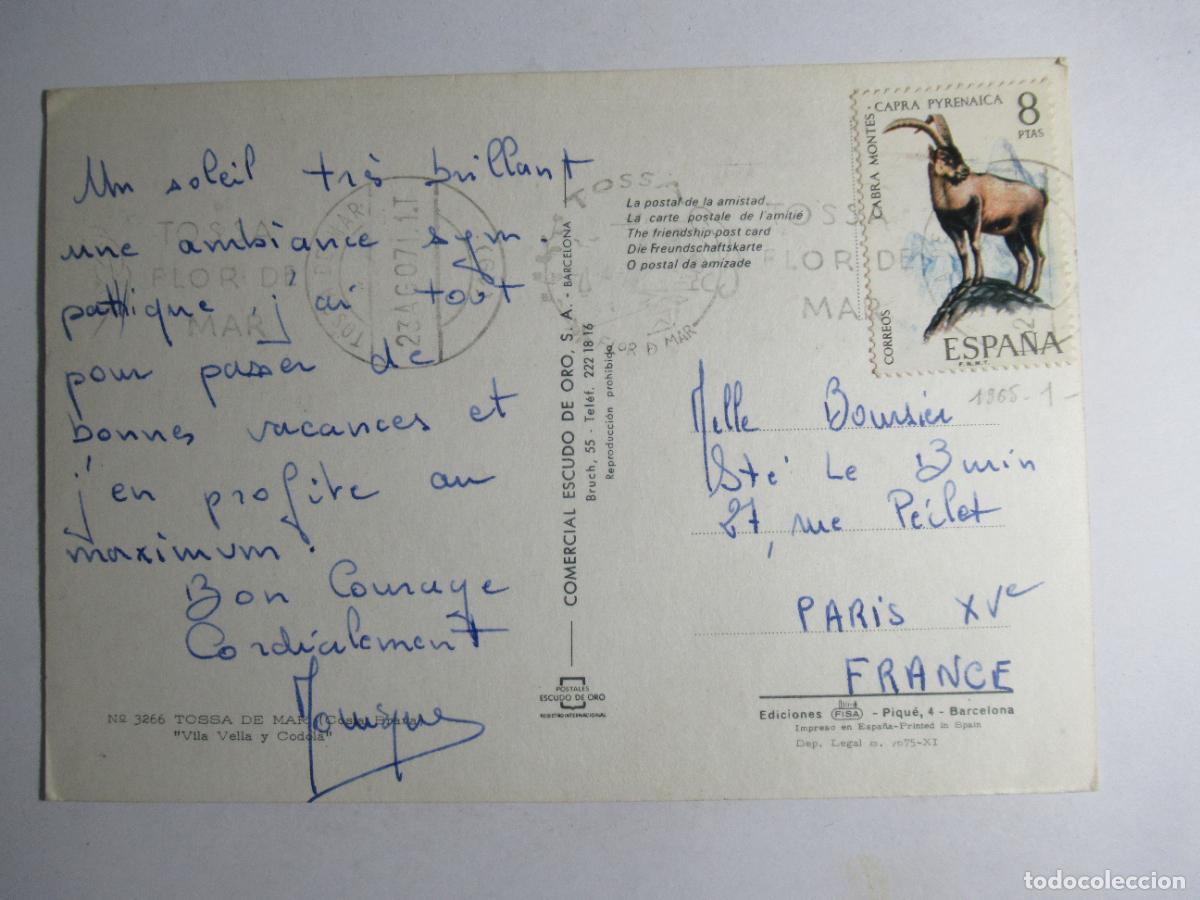 Un soleil très brillant
une ambiance sym-
pathique, j'ai tout
pour passer de
bonnes vacances et
j'en profite au
maximum.
Bon Courage
Cordialement
Monique
Nº 3266 TOSSA DE MAR (Costa Brava)
"Vila Vella y Codolà"
TOSSA
FLOR DE
MAR
TOSSA DE MAR
23AGO71.1.T
TOSSA
FLOR D MAR
TOSSA
FLOR DE
MAR
COMERCIAL ESCUDO DE ORO, S. A. - BARCELONA
Bruch, 55 - Teléf. 222 18 16
Reproducción prohibida
POSTALES
ESCUDO DE ORO
REGISTRO INTERNACIONAL
La postal de la amistad
La carte postale de l'amitié
The friendship post card
Die Freundschaftskarte
O postal da amizade
CAPRA PYRENAICA
CABRA MONTES
8
PTAS
CORREOS
ESPAÑA
F.N.M.T.
1965-1-
Melle Boursier
Sté Le Burin
27, rue Péclet
PARIS XVe
FRANCE
Ediciones FISA - Piqué, 4 - Barcelona
Impreso en España-Printed in Spain
Dep. Legal B. 7675-XI
todocoleccion